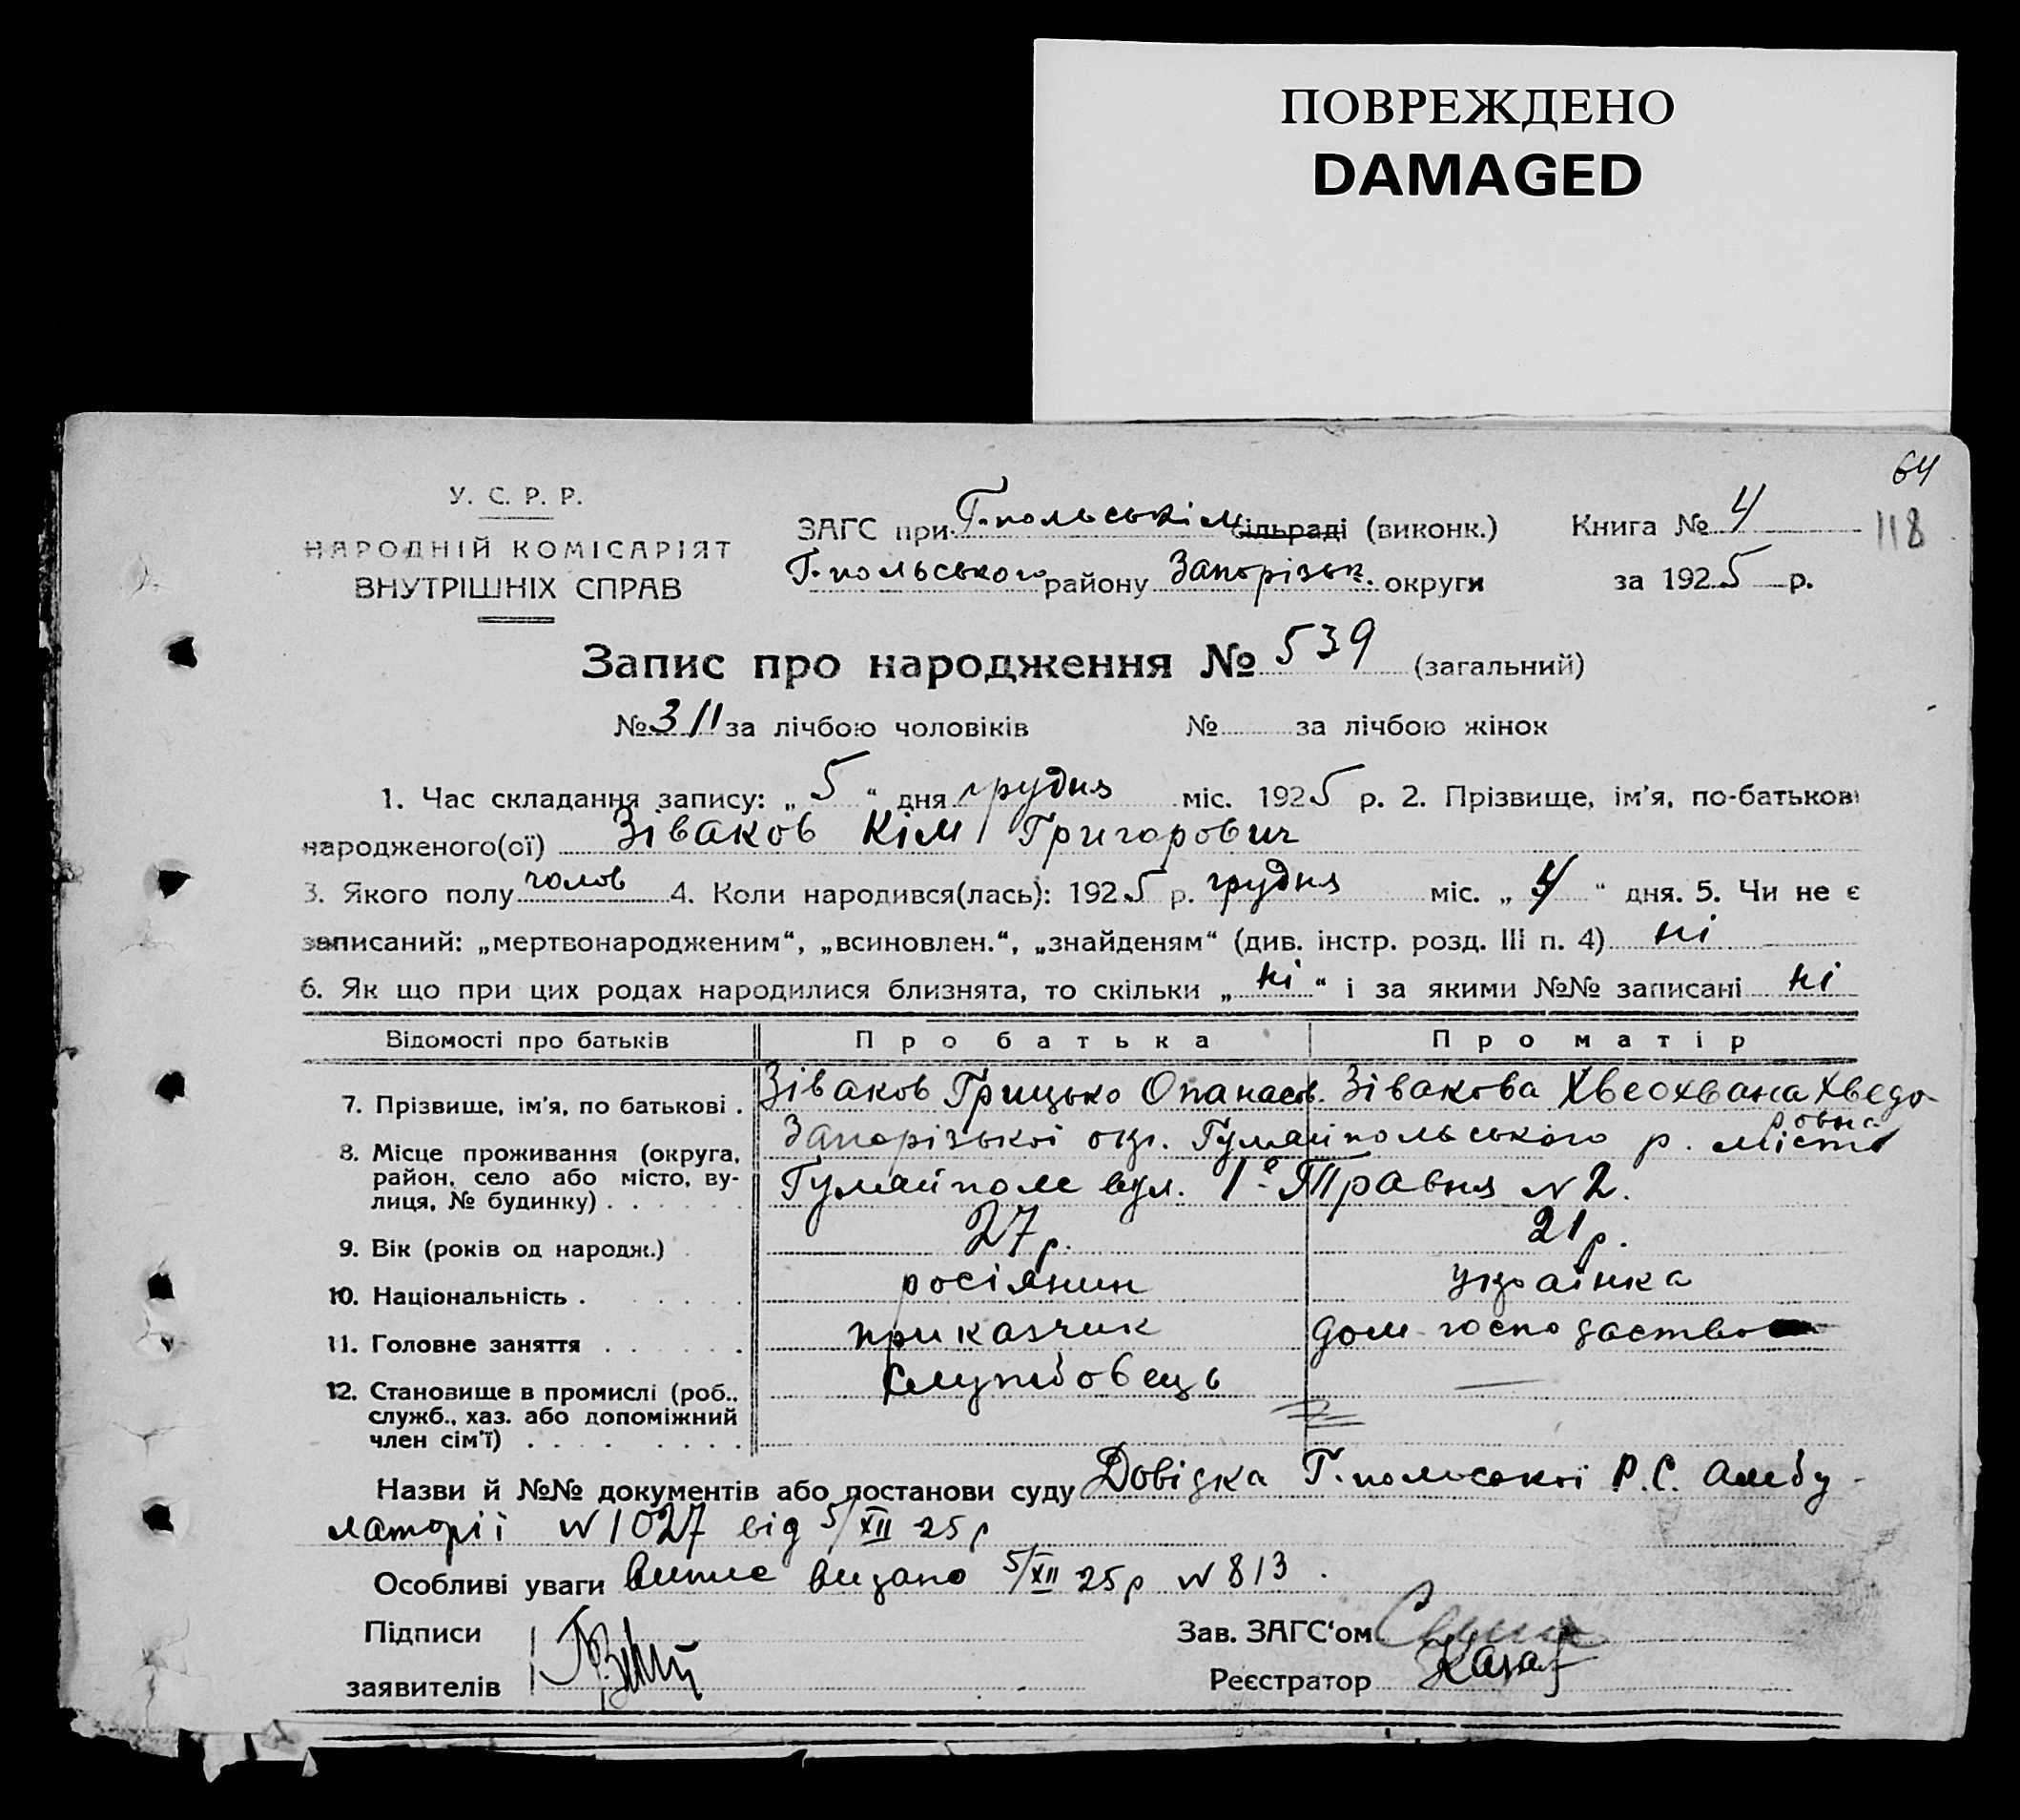 ПОВРЕЖДЕНО
DAMAGED
64
118
У. С. Р. Р.
НАРОДНІЙ КОМІСАРІЯТ
ВНУТРІШНІХ СПРАВ
ЗАГС при Г.польськім сільраді (виконк.) Книга № 4
Г.польського району Запорізьк. округи за 1925 р.
Запис про народження № 539 (загальний)
№ 311 за лічбою чоловіків № за лічбою жінок
1. Час складання запису: „ 5 “ дня грудня міс. 1925 р. 2. Прізвище, ім’я, по-батькові
народженого(ої) Зіваков Кім Григорович
3. Якого полу чолов 4. Коли народився(лась): 1925 р. грудня міс. „ 4 “ дня. 5. Чи не є
записаний: „мертвонародженим“, „всиновлен.“, „знайденям“ (див. інстр. розд. III п. 4) ні
6. Як що при цих родах народилися близнята, то скільки „ ні “ і за якими №№ записані ні
Відомості про батьків Про батька Про матір
7. Прізвище, ім’я, по батькові . Зіваков Грицько Опанасов. Зівакова Хвеохвана Хведо-
ровна
8. Місце проживання (округа, Запорізької окр. Гуляйпольського р. місто
район, село або місто, ву- Гуляйполе вул. 1е Травня N 2.
лиця, № будинку) . . . . . .
9. Вік (років од народж.) 27 р. 21 р.
10. Національність . росіянин українка
11. Головне заняття . . . . . . приказчик дом. господаство
12. Становище в промислі (роб., службовець —
служб., хаз. або допоміжний
член сім’ї) . . . . . . . .
Назви й №№ документів або постанови суду Довідка Г.польської Р.С. Амбу-
латорії N 1027 від 5/XII 25 р
Особливі уваги витяг видано 5/XII 25 р N 813 .
Підписи Зав. ЗАГС‘ом
заявителів Реєстратор